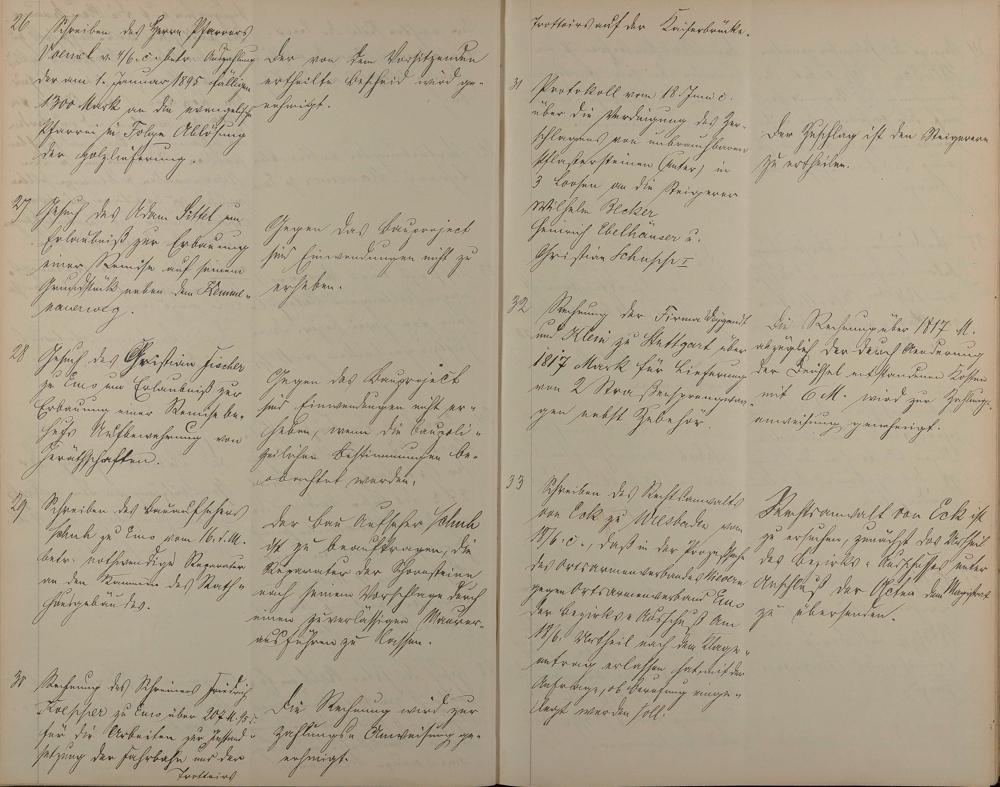 26 Schreiben des Herrn Pfarrers
v. 4/6. c. betr. Auszahlung
der am 1. Januar 1895 fälligen
1300 Mark an die evangelische
Pfarrei in Folge Ablösung
der Holzlieferung.
Der von dem Vorsitzenden
ertheilte Bescheid wird ge-
nehmigt.
27 Gesuch des Adam Sittel um
Erlaubniß zur Erbauung
einer Remise auf seinem
Grundstück neben dem Kemme-
nauerweg.
Gegen das Bauproject
sind Einwendungen nicht zu
erheben.
28 Gesuch des Christian Fischer
zu Ems um Erlaubniß zur
Erbauung einer Remise be-
hufs Aufbewahrung von
Geräthschaften.
Gegen das Bauproject
sind Einwendungen nicht er-
heben, wenn die baupoli-
zeilichen Bestimmungen be-
obachtet werden.
29 Schreiben des Bauaufsehers
zu Ems vom 16. d. M.
betr. nothwendige Reparatur
an den Kaminen des Rath-
hausgebäudes.
Der Bau Aufseher
ist zu beauftragen, die
Reparatur der Schornsteine
nach seinem Vorschlage durch
einen zuverlässigen Maurer
ausführen zu lassen.
30 Rechnung des Schreiners Friedrich
zu Ems über 207 M.
für die Arbeiten zur Instand-
setzung der Fahrbahn und der
Trottoirs
Die Rechnung wird zur
Zahlungs Anweisung ge-
nehmigt.
Trottoirs auf der Kaiserbrücke.
31 Protokoll vom 18. Juni c.
über die Verdingung des Zer-
schlagens von unbrauchbaren
Pflastersteinen in
3 Loosen an die Steigerer
Wilhelm Becker
Heinrich Ebelhäuser u.
Christian Schupp I
Der Zuschlag ist den Steigerern
zu ertheilen.
32 Rechnung der Firma
und Klein zu Stuttgart über
1817 Mark für Lieferung
von 2 Straßensprengwa-
gen nebst Zubehör.
Die Rechnung über 1817 M.
abzüglich der durch Aenderung
der Deichsel entstandenen Kosten
mit 6 M. wird zur Zahlungs-
anweisung genehmigt.
33 Schreiben des Rechtsanwalts
von Eck zu Wiesbaden vom
18/6. c., daß in der Prozeßsache
des Ortsarmenverbandes
gegen Ortsarmenverband Ems
der Bezirks Ausschuß am
18/6. Urtheil nach dem Klage-
antrag erlassen hat, mit der
Anfrage, ob Berufung einge-
legt werden soll.
Rechtsanwalt von Eck ist
zu ersuchen, zunächst das Urtheil
des Bezirks Ausschusses unter
Anschluß der Acten dem Magistrat
zu übersenden.